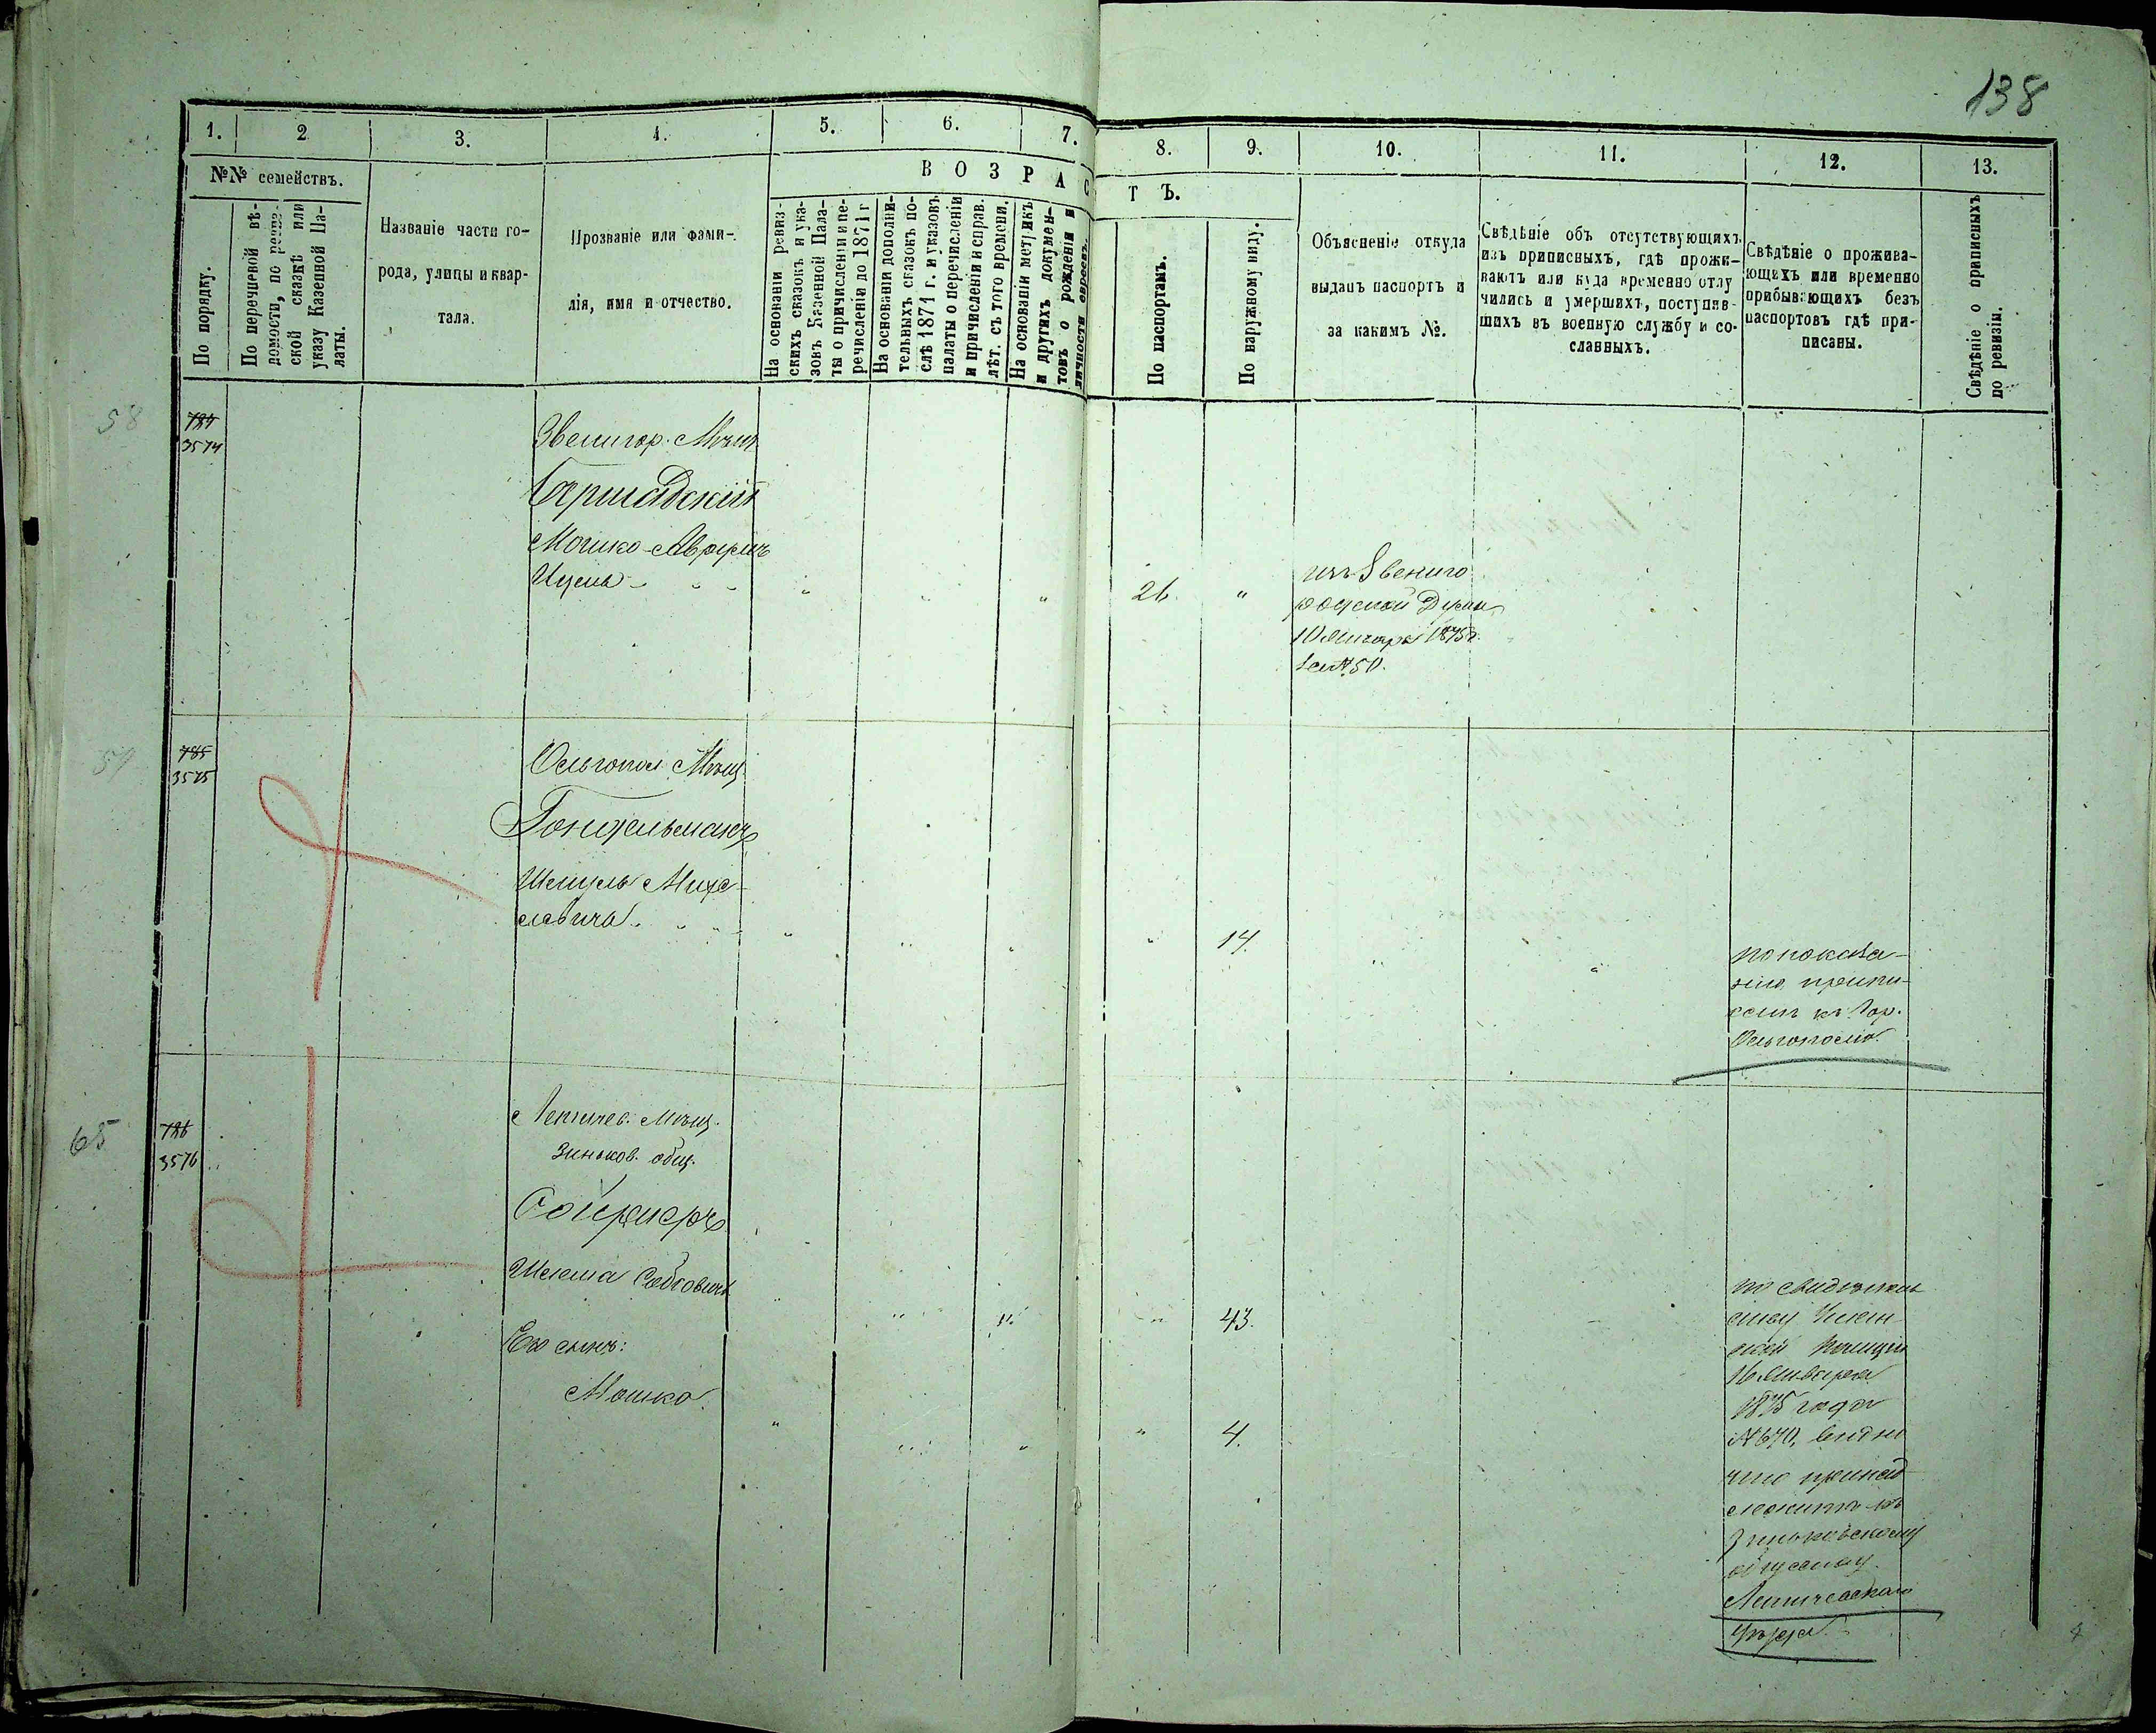 138
1. 2 3. 4. 5. 6. 7. 8. 9. 10. 11. 12. 13.
№№ семействъ.
В О З Р А С Т Ъ.
По порядку.
По перечневой вѣ-
домости, по ревиз-
ской сказкѣ или
указу Казенной Па-
латы.
Названіе части го-
рода, улицы и квар-
тала.
Прозваніе или фами-
лія, имя и отчество.
На основаніи ревиз-
скихъ сказокъ и ука-
зовъ Казенной Пала-
ты о причисленіи и пе-
речисленіи до 1871 г
На основаніи дополни-
тельныхъ сказокъ по-
слѣ 1871 г. и указовъ
палаты о перечисленіи
и причисленіи и справ.
лѣт. съ того времени.
На основаніи метрикъ
и другихъ докумен-
товъ о рожденіи и
личности евреевъ.
По паспортамъ.
По наружному виду.
Объясненіе откуда
выданъ паспортъ и
за какимъ №.
Свѣдѣніе объ отсутствующихъ
изъ приписныхъ, гдѣ прожи-
ваютъ или куда временно отлу
чились и умершихъ, поступив-
шихъ въ военную службу и со-
сланныхъ.
Свѣдѣніе о прожива-
ющихъ или временно
прибывающихъ безъ
паспортовъ гдѣ при-
писаны.
Свѣдѣніе о приписныхъ
по ревизіи.
58
784
3574
Звенигор. Мѣщ.
Бершадскій
Мошко-Аврумъ
Ицковъ
26.
изъ Звениго
родской Думы
10 Января 1875 г.
за №50.
59
785
3575
Ольгопол. Мѣщ.
Гонфельманъ
Шмуль Михе-
левичъ
14.
по показа-
нію припи-
санъ къ Гор.
Ольгополю.
65
786
3576
Летичев. Мѣщ.
Зиньков. общ.
Сойферъ
Шлема
Его сынъ:
Мошко
43.
4.
по свидѣтель
ству
ской Полиціи
Января
1875 года
№670, видно
что принад-
лежитъ къ
Зиньковскому
обществу
Летичевскаго
Уѣзда.